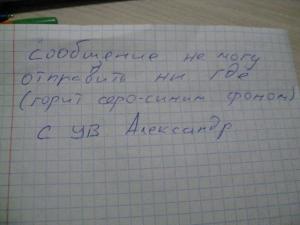 сообщение не могу
отправить ни где
(горит серо-синим фоном)
С УВ Александр